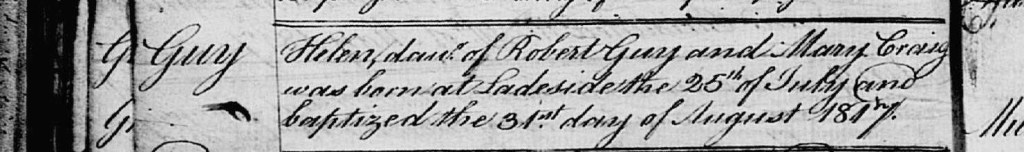 Guy
Helen, daur. of Robert Guy and Mary Craig
was born at Ladeside the 25th of July and
baptized the 31st day of August 1817.